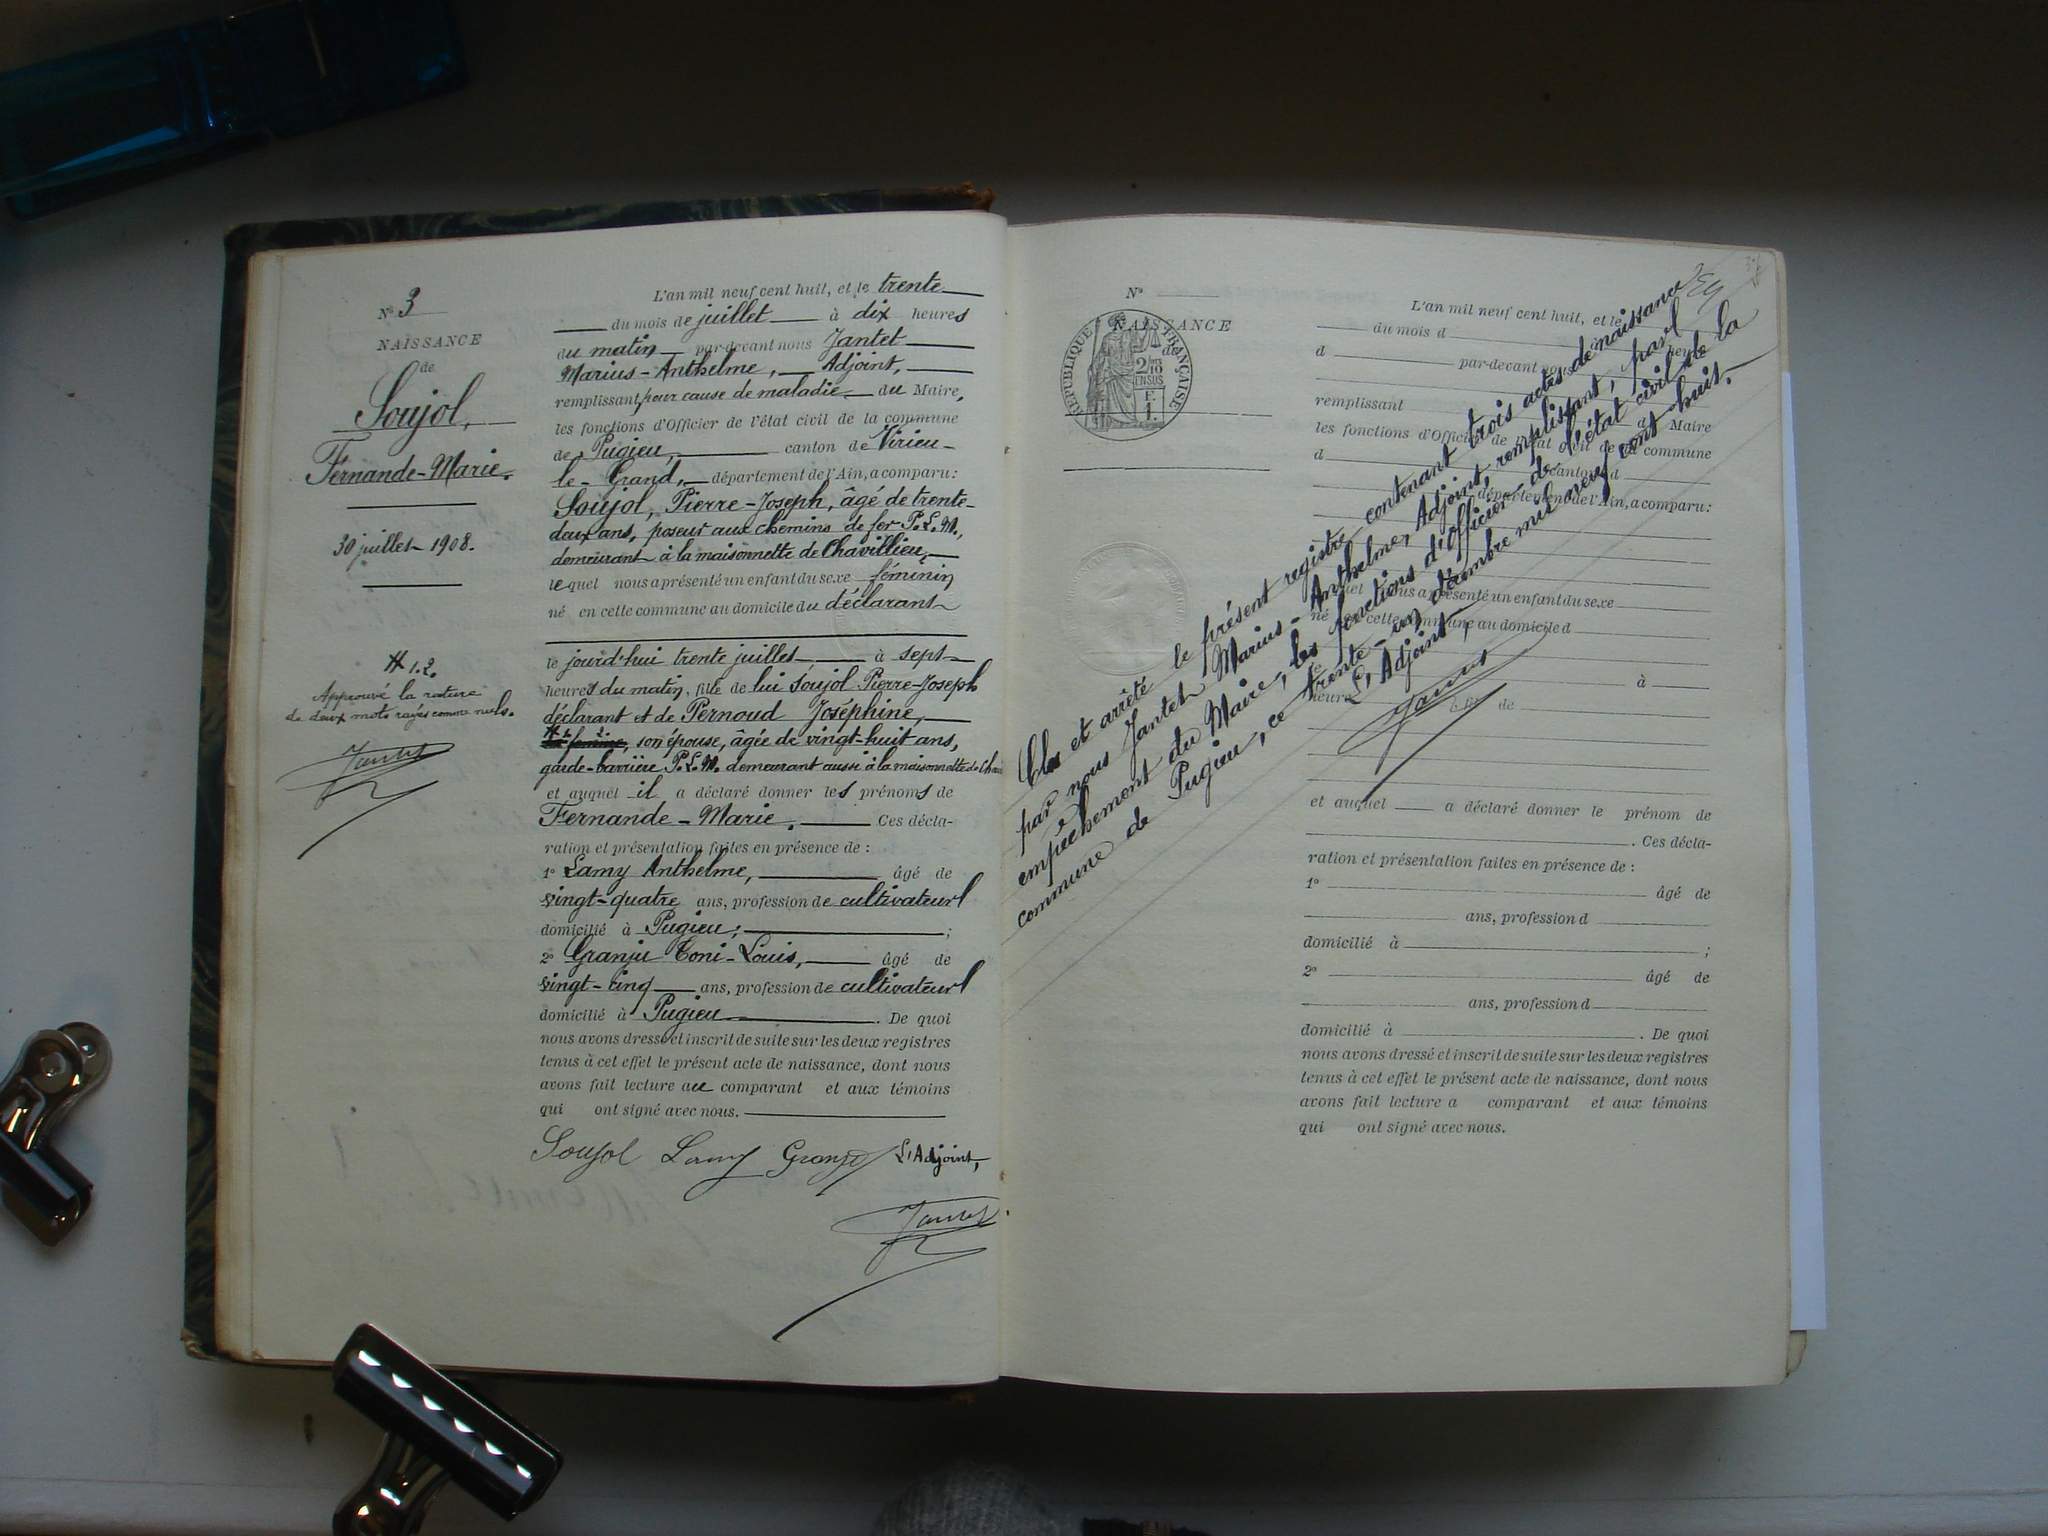 N° 3
NAISSANCE
de
Soujol,
Fernande-Marie.
30 juillet 1908.
# 1.2.
Approuvé la rature
de deux mots rayés comme nuls.
Jantet
L'an mil neuf cent huit, et le trente
du mois de juillet à dix heures
du matin par-devant nous Jantet
Marius-Anthelme, Adjoint,
remplissant pour cause de maladie du Maire,
les fonctions d'Officier de l'état civil de la commune
de Pugieu, canton de Virieu-
le-Grand, département de l'Ain, a comparu :
Soujol, Pierre-Joseph, âgé de trente-
deux ans, poseur aux chemins de fer P.L.M.,
demeurant à la maisonnette de Chavillieu,
lequel nous a présenté un enfant du sexe féminin
né en cette commune au domicile du déclarant
le jourd'hui trente juillet à sept
heures du matin, fille de lui Soujol Pierre-Joseph
déclarant et de Pernoud Joséphine,
son épouse, âgée de vingt-huit ans,
garde-barrière P.L.M. demeurant aussi à la maisonnette de Cha
et auquel il a déclaré donner les prénoms de
Fernande-Marie. Ces décla-
ration et présentation faites en présence de :
1° Lamy Anthelme, âgé de
vingt-quatre ans, profession de cultivateur
domicilié à Pugieu ;
2° Granju Toni-Louis, âgé de
vingt-cinq ans, profession de cultivateur
domicilié à Pugieu. De quoi
nous avons dressé et inscrit de suite sur les deux registres
tenus à cet effet le présent acte de naissance, dont nous
avons fait lecture au comparant et aux témoins
qui ont signé avec nous.
Soujol Lamy Granju L'Adjoint,
Jantet
N°
NAISSANCE
de
RÉPUBLIQUE FRANÇAISE
2/10 EN SUS
F.
1.
L'an mil neuf cent huit, et le
du mois d à heure
d par-devant nous
remplissant Maire
les fonctions d'Officier de l'état civil de la commune
d canton d
département de l'Ain, a comparu :
quel nous a présenté un enfant du sexe
né en cette commune au domicile d
le à
heure fil de
et auquel a déclaré donner le prénom de
. Ces décla-
ration et présentation faites en présence de :
1° âgé de
ans, profession d
domicilié à ;
2° âgé de
ans, profession d
domicilié à . De quoi
nous avons dressé et inscrit de suite sur les deux registres
tenus à cet effet le présent acte de naissance, dont nous
avons fait lecture a comparant et aux témoins
qui ont signé avec nous.
Clos et arrêté le présent registre contenant trois actes de naissance
par nous Jantet Marius-Anthelme, Adjoint, remplissant, par
empêchement du Maire, les fonctions d'Officier de l'état civil de la
commune de Pugieu, ce trente-un décembre mil neuf cent huit.
L'Adjoint,
Jantet